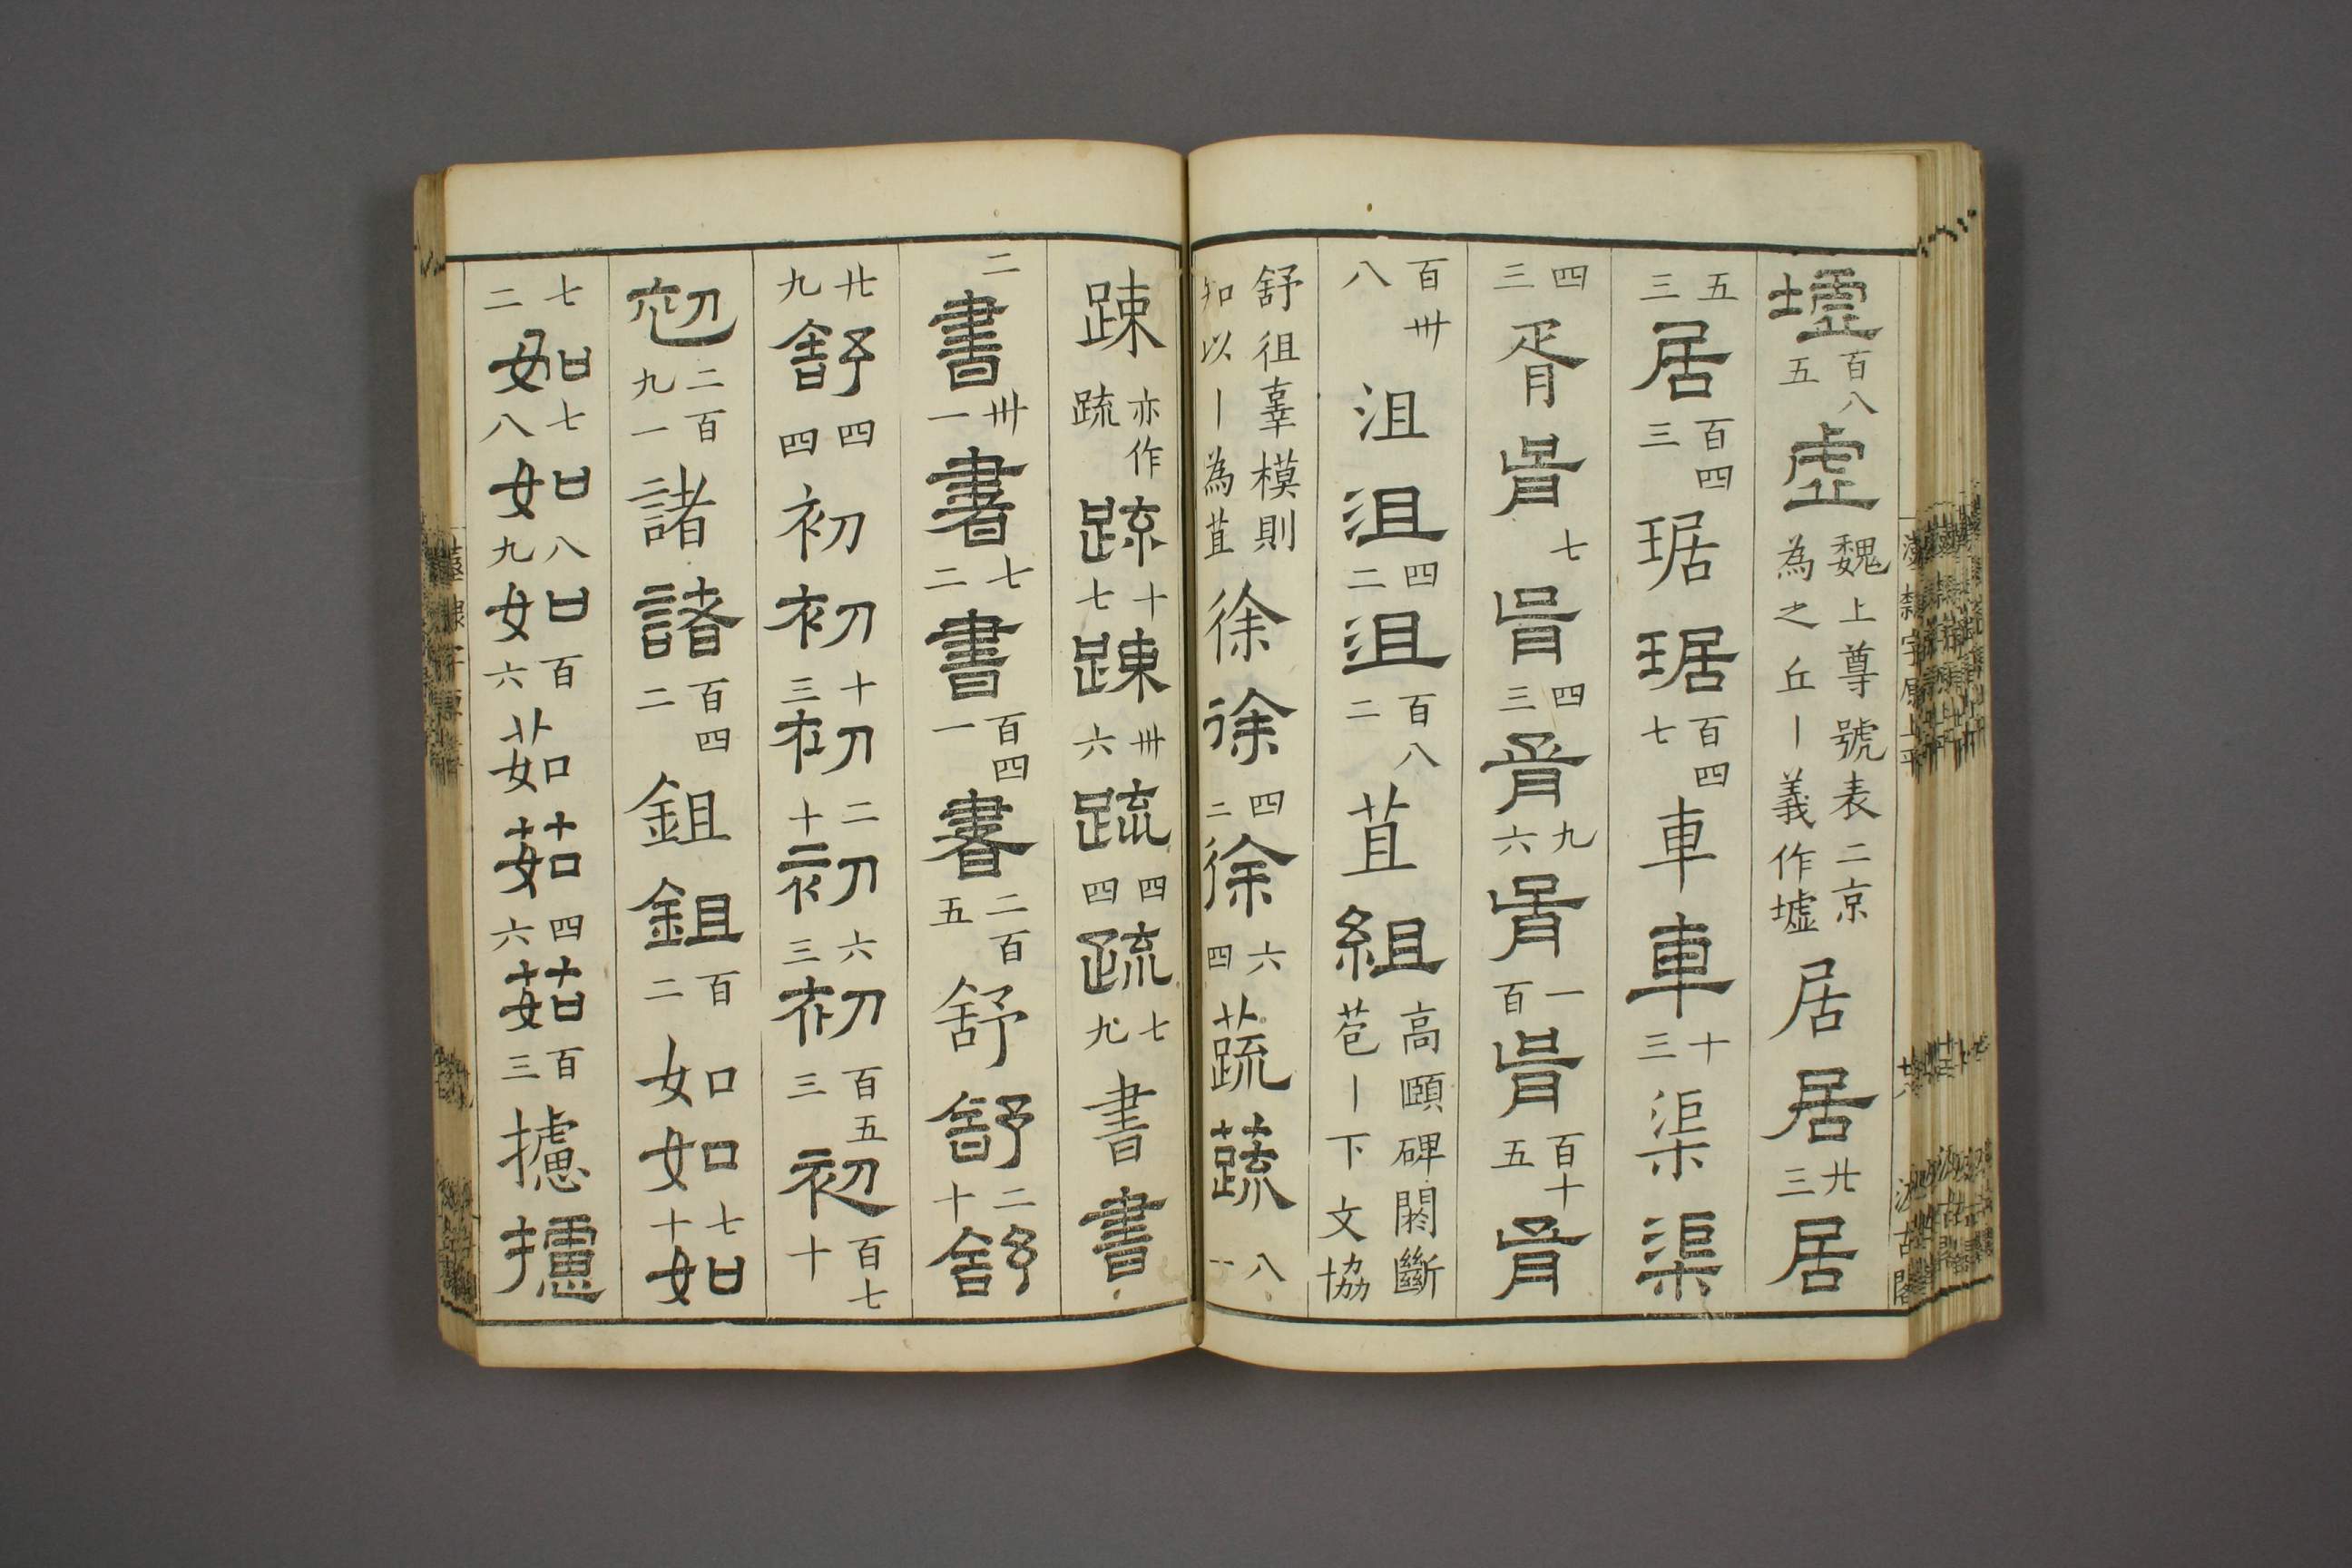 墟百八五虛魏上尊號表二京為之丘丨義作墟居居廿三居
五三居百四三琚琚百四七車車十三渠渠
四三胥胥七胥四三胥九六胥一百胥百十五胥
百卅八沮沮四二沮百八二苴組高頤碑闕斷苞丨下文協
舒徂辜模則知以丨為苴徐徐四二徐六四蔬蔬八一
疎亦作疏疏十七疎卅六疏四四疏七九書書
二書卅一書七二書百四一書二百五舒舒二十舒
廿九舒四四初初十三初二十初六三初百五三初百七十
初二九百一諸諸百四二鉏鉏百二如如七十如
七二如七八如八九如百六茹茹四六茹百三攄攄
漢隸字原上平
廿八
汲古閣